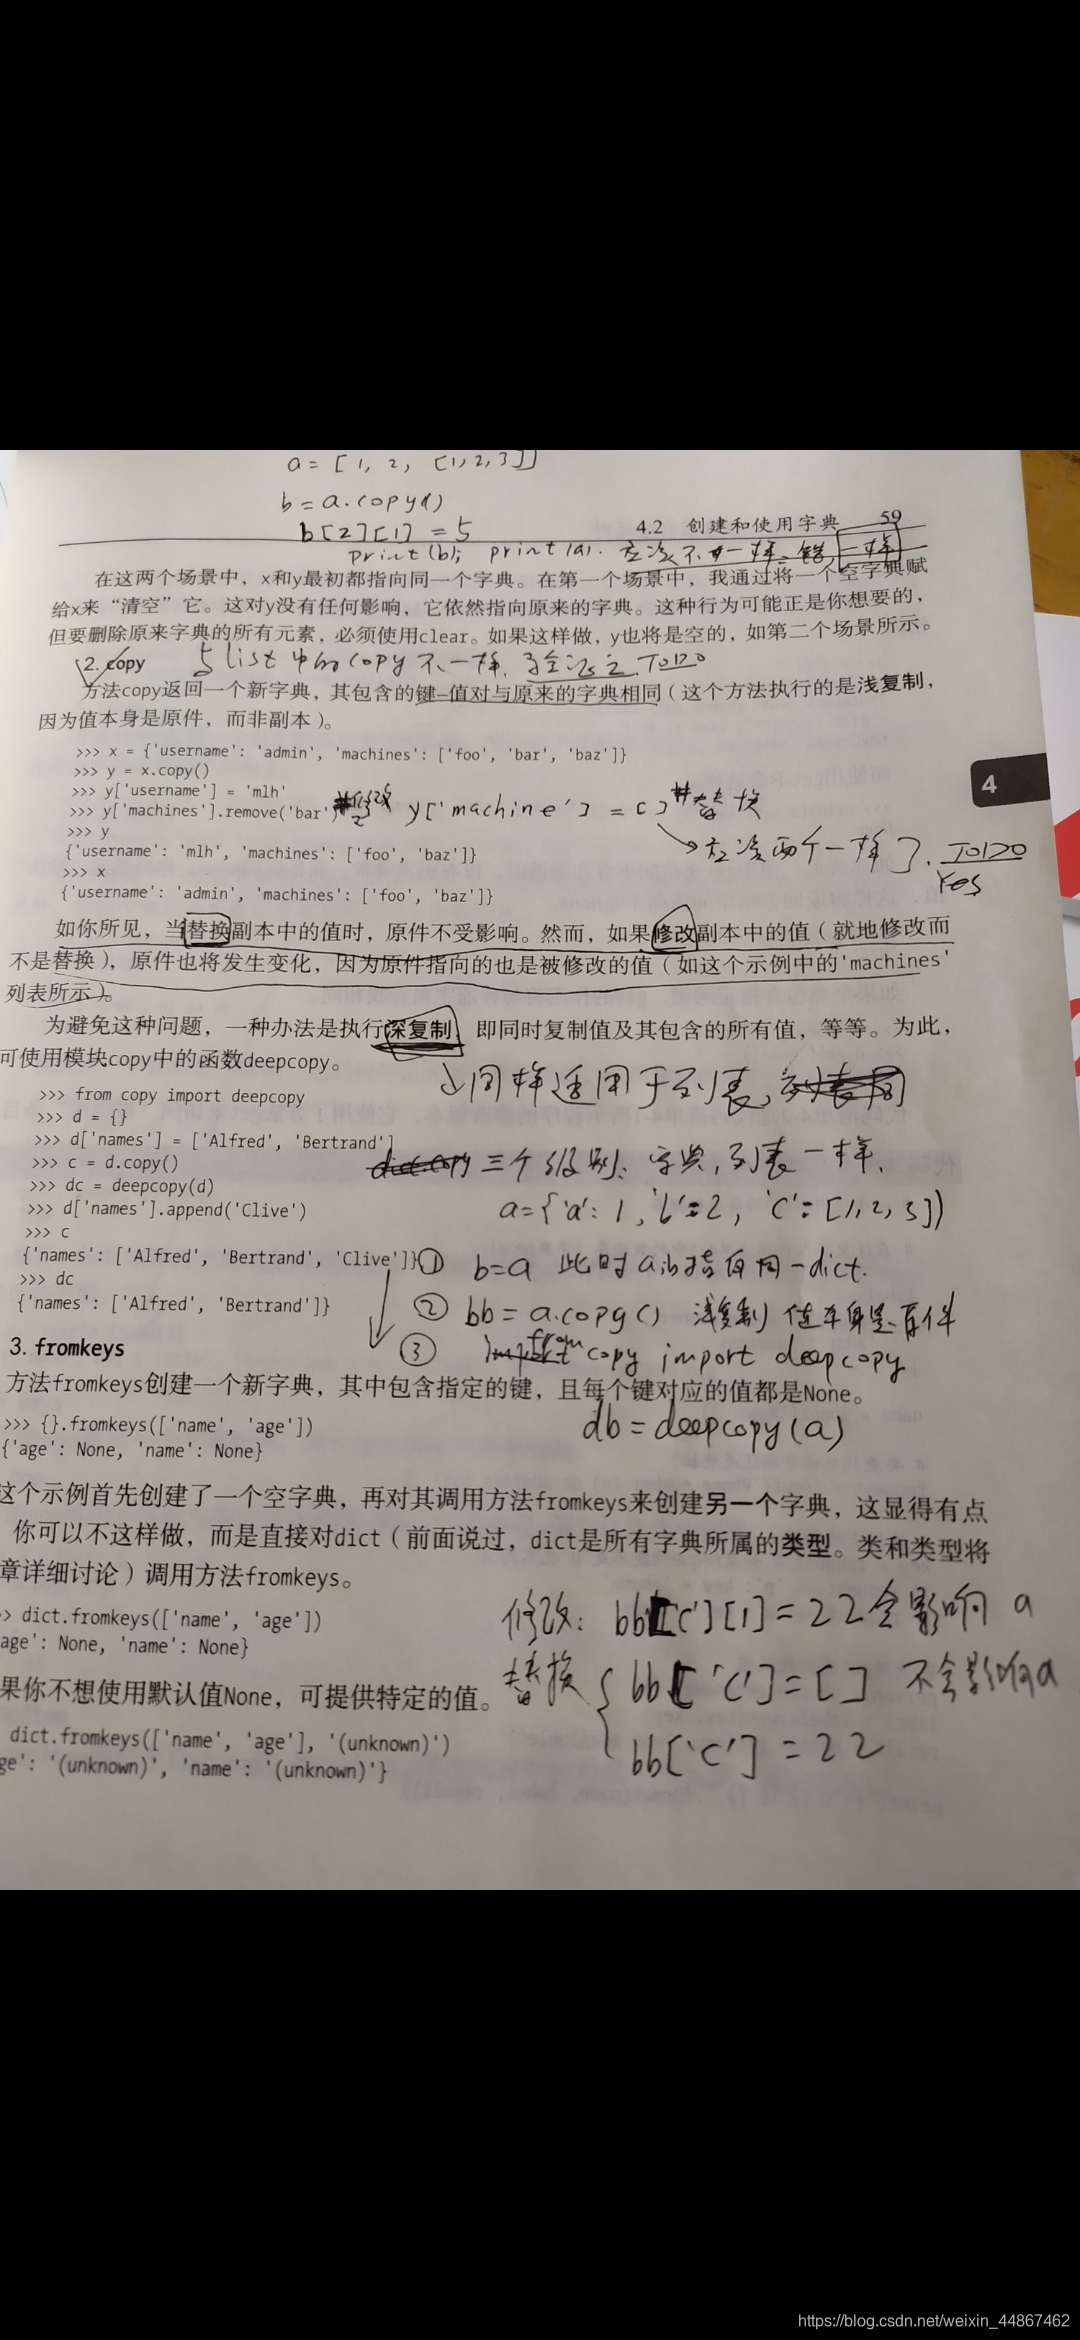 a = [1, 2, [1,2,3]]
b = a.copy()
b[2][1] = 5
4.2 创建和使用字典 59
print(b); print(a). 应该不一样=错 一样
在这两个场景中，x和y最初都指向同一个字典。在第一个场景中，我通过将一个空字典赋
给x来“清空”它。这对y没有任何影响，它依然指向原来的字典。这种行为可能正是你想要的，
但要删除原来字典的所有元素，必须使用clear。如果这样做，y也将是空的，如第二个场景所示。
2. copy 与list中的copy不一样. TODO
方法copy返回一个新字典，其包含的键–值对与原来的字典相同（这个方法执行的是浅复制，
因为值本身是原件，而非副本）。
>>> x = {'username': 'admin', 'machines': ['foo', 'bar', 'baz']}
>>> y = x.copy()
>>> y['username'] = 'mlh'
>>> y['machines'].remove('bar' #修改 y['machine'] = [] #替换
>>> y
→应该两个一样了. TODO
{'username': 'mlh', 'machines': ['foo', 'baz']}
Yes
>>> x
{'username': 'admin', 'machines': ['foo', 'baz']}
如你所见，当替换副本中的值时，原件不受影响。然而，如果修改副本中的值（就地修改而
不是替换），原件也将发生变化，因为原件指向的也是被修改的值（如这个示例中的'machines'
列表所示）。
为避免这种问题，一种办法是执行深复制，即同时复制值及其包含的所有值，等等。为此，
可使用模块copy中的函数deepcopy。
↓同样适用于列表,
>>> from copy import deepcopy
>>> d = {}
>>> d['names'] = ['Alfred', 'Bertrand']
>>> c = d.copy()
dict.copy 三个级别: 字典,列表一样.
>>> dc = deepcopy(d)
>>> d['names'].append('Clive')
a={'a': 1, 'b'=2, 'c'=[1,2,3])
>>> c
{'names': ['Alfred', 'Bertrand', 'Clive']}
① b=a 此时a,b指向同一dict.
>>> dc
{'names': ['Alfred', 'Bertrand']}
② bb = a.copy() 浅复制 值本身是原件
③ import from copy import deepcopy
3. fromkeys
方法fromkeys创建一个新字典，其中包含指定的键，且每个键对应的值都是None。
db = deepcopy(a)
>>> {}.fromkeys(['name', 'age'])
{'age': None, 'name': None}
这个示例首先创建了一个空字典，再对其调用方法fromkeys来创建另一个字典，这显得有点
你可以不这样做，而是直接对dict（前面说过，dict是所有字典所属的类型。类和类型将
章详细讨论）调用方法fromkeys。
> dict.fromkeys(['name', 'age'])
age': None, 'name': None}
修改: bb['c'][1] = 22 会影响 a
果你不想使用默认值None，可提供特定的值。
替换 bb['c']=[] 不会影响a
bb['c'] = 22
dict.fromkeys(['name', 'age'], '(unknown)')
ge': '(unknown)', 'name': '(unknown)'}
4
https://blog.csdn.net/weixin_44867462